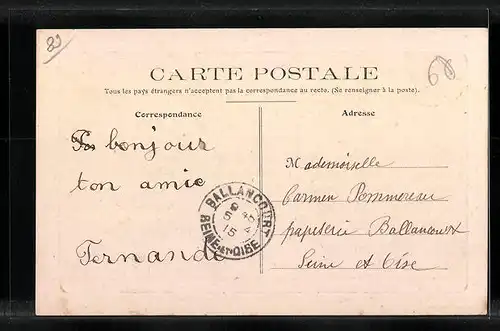 89
60
CARTE POSTALE
Tous les pays étrangers n'acceptent pas la correspondance au recto. (Se renseigner à la poste).
Correspondance
Adresse
bonjour
ton amie
Fernande
Mademoiselle
Carmen Pommereau
papeterie Ballancourt
Seine et Oise
BALLANCOURT
SEINE-ET-OISE